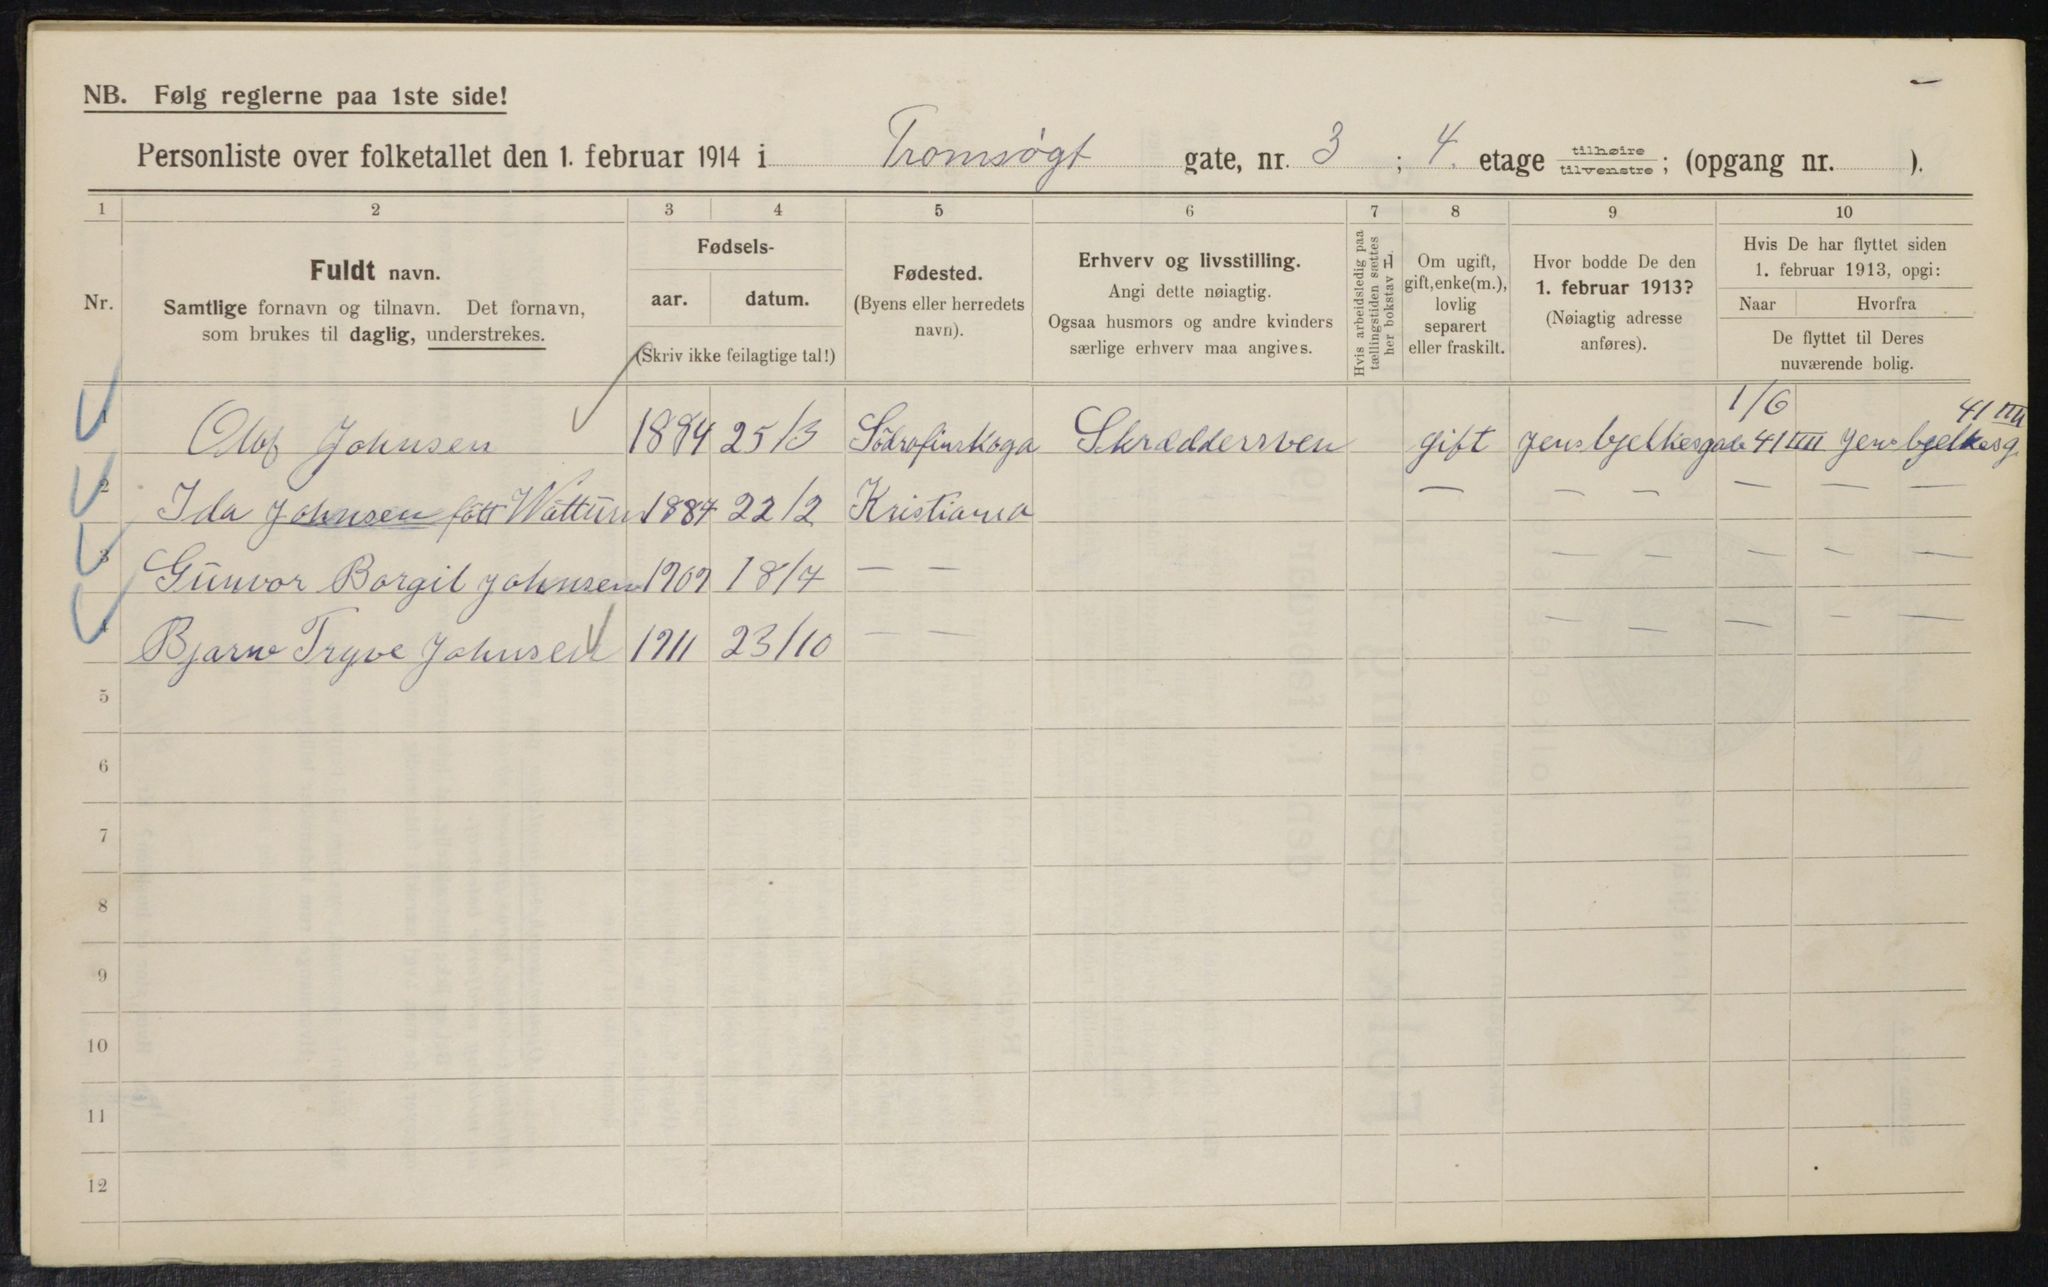 NB. Følg reglerne paa 1ste side!
Personliste over folketallet den 1. februar 1914 i Tromsøgt gate, nr. 3 ; 4. etage tilhøire tilvenstre ; (opgang nr. ).
1 2 3 4 5 6 7 8 9 10
Nr.
Fuldt navn.
Samtlige fornavn og tilnavn. Det fornavn,
som brukes til daglig, understrekes.
Fødsels-
aar. datum.
(Skriv ikke feilagtige tal!)
Fødested.
(Byens eller herredets
navn).
Erhverv og livsstilling.
Angi dette nøiagtig.
Ogsaa husmors og andre kvinders
særlige erhverv maa angives.
Hvis arbeidsledig paa
tællingstiden sættes
her bokstav L
Om ugift,
gift, enke(m.),
lovlig
separert
eller fraskilt.
Hvor bodde De den
1. februar 1913?
(Nøiagtig adresse
anføres).
Hvis De har flyttet siden
1. februar 1913, opgi:
Naar Hvorfra
De flyttet til Deres
nuværende bolig.
1 Olof Johnsen 1884 25/3 Södrafinskoga Skræddersven gift Jens bjelkesgade 41 IIII 1/6 Jens bjelkesg 41 IIII
2 Ida Johnsen fött 1887 22/2 Kristiania — — — — — —
3 Gunvor Borgil Johnsen 1909 18/7 — — — — — — —
4 Bjarne Trygve Johnsen 1911 23/10 — — — — — — —
5
6
7
8
9
10
11
12